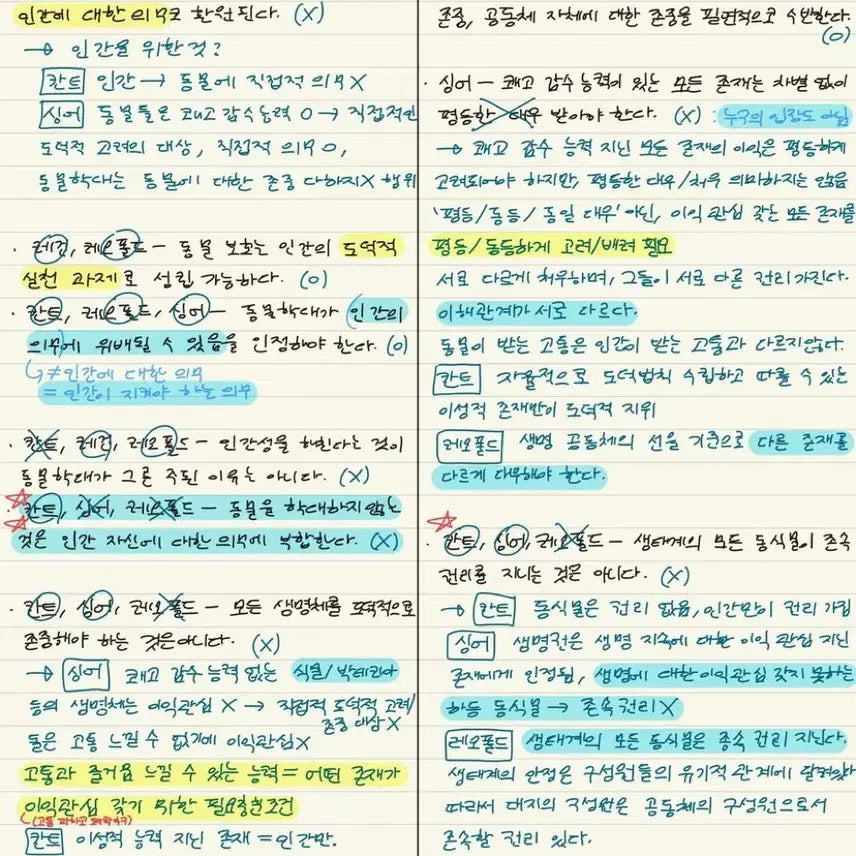 인간에 대한 의무로 환원된다. (X)
→ 인간을 위한 것?
칸트 인간 → 동물에 직접적 의무 X
싱어 동물들은 쾌고 감수 능력 O → 직접적인
도덕적 고려의 대상, 직접적 의무 O,
동물학대는 동물에 대한 존중 다하지X 행위
· 레건, 레오폴드 - 동물 보호는 인간의 도덕적
실천 과제로 성립 가능하다. (O)
· 칸트, 레오폴드, 싱어 - 동물학대가 (인간의
의무)에 위배될 수 있음을 인정해야 한다. (O)
↳ ≠ 인간에 대한 의무
= 인간이 지켜야 하는 의무
· 칸트, 레건, 레오폴드 - 인간성을 해친다는 것이
동물학대가 그른 주된 이유는 아니다. (X)
☆ · 칸트, 싱어, 레오폴드 - 동물을 학대하지 않는
☆ 것은 인간 자신에 대한 의무에 부합한다. (X)
· 칸트, 싱어, 레오폴드 - 모든 생명체를 도덕적으로
존중해야 하는 것은 아니다. (X)
→ 싱어 쾌고 감수 능력 없는 식물/박테리아
등의 생명체는 이익관심 X → 직접적 도덕적 고려/
존중 대상 X
돌은 고통 느낄 수 없기에 이익관심X
고통과 즐거움 느낄 수 있는 능력 = 어떤 존재가
이익관심 갖기 위한 필요충분조건
(고통 피하고
칸트 이성적 능력 지닌 존재 = 인간만.
존중, 공동체 자체에 대한 존중을 필연적으로 수반한다.
(O)
· 싱어 - 쾌고 감수 능력이 있는 모든 존재는 차별 없이
평등한 대우 받아야 한다. (X) : 누구의 입장도 아님
→ 쾌고 감수 능력 지닌 모든 존재의 이익은 평등하게
고려되어야 하지만, 평등한 대우/처우 의미하지는 않음
'평등/동등/동일 대우' 아닌, 이익 관심 갖는 모든 존재를
평등/동등하게 고려/배려 필요
서로 다르게 처우하며, 그들이 서로 다른 권리 가진다.
이해관계가 서로 다르다.
동물이 받는 고통은 인간이 받는 고통과 다르지않다.
칸트 자율적으로 도덕법칙 수립하고 따를 수 있는
이성적 존재만이 도덕적 지위
레오폴드 생명 공동체의 선을 기준으로 다른 존재를
다르게 대우해야 한다.
☆ · 칸트, 싱어, 레오폴드 - 생태계의 모든 동식물이 존속
권리를 지니는 것은 아니다. (X)
→ 칸트 동식물은 권리 없음, 인간만이 권리 가짐
싱어 생명권은 생명 지속에 대한 이익 관심 지닌
존재에게 인정됨, 생명에 대한 이익 관심 갖지 못하는
하등 동식물 → 존속 권리 X
레오폴드 생태계의 모든 동식물은 존속 권리 지닌다.
생태계의 안정은 구성원들의 유기적 관계에 달려있다
따라서 대지의 구성원은 공동체의 구성원으로서
존속할 권리 있다.